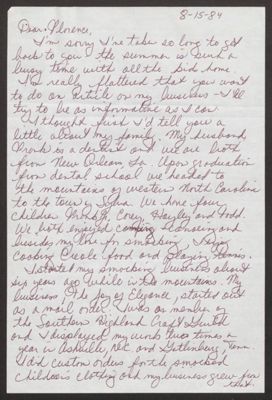 8-15-84
Dear Florence,
I'm sorry I've take so long to get
back to you the summer is such a
busy time with all the kids home.
I'm really flattered that you want
to do an article on my business - I'll
try to be as informative as I can.
I thought first I'd tell you a
little about my family. My husband
is a dentist and we are both
from New Orleans, La. Upon graduation
from dental school we headed to
the mountains of western North Carolina
to the town of Sylva. We have four
children Corey, Hayley and Todd.
We both enjoyed camping, and
besides my love for smocking I enjoy
cooking Creole food and playing tennis.
I started my smocking business about
six years ago while in the mountains. My
business, The Joy of Elegance, started out
as a mail order. I was a member of
the Southern Highland Craft Guild
and I displayed my work two times a
year in Asheville, N.C. and Gatlinburg, Tenn.
I did custom orders for the smocked
children's clothing and my business grew from
that.